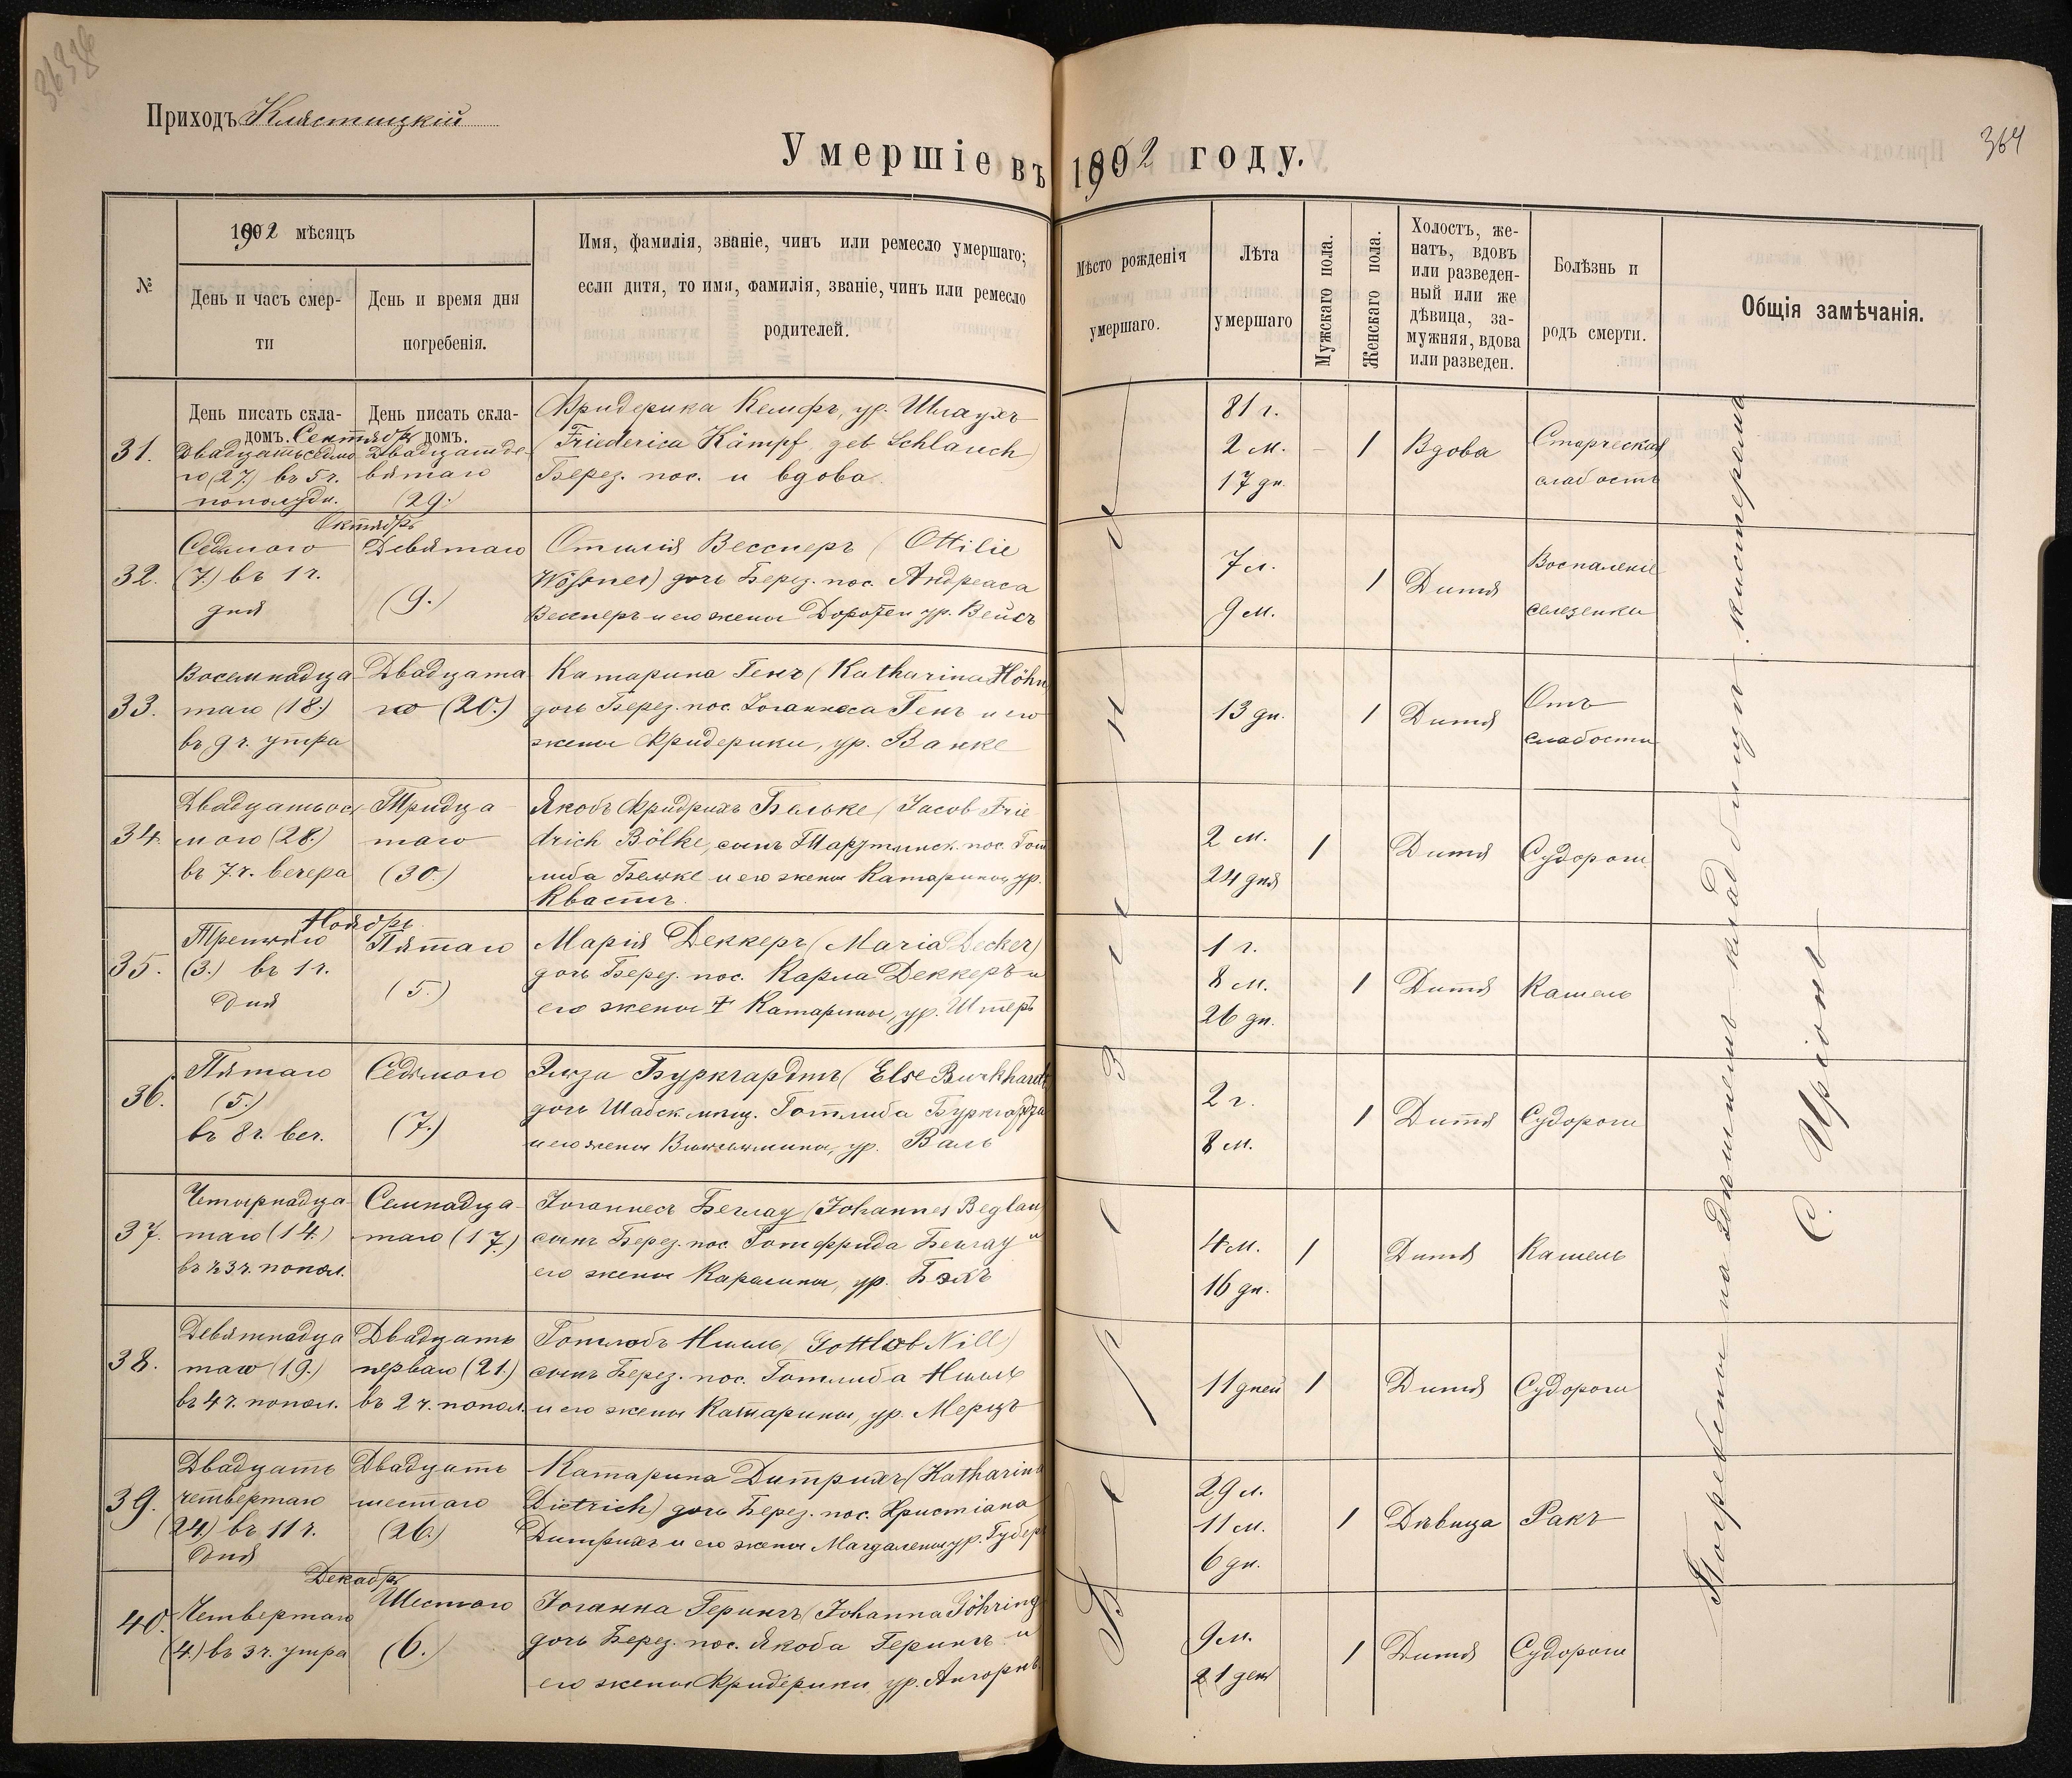 Приходъ Клястицкій
364
Умершіе въ 1902 году.
№
1902 мѣсяцъ
День и часъ смер-
ти
День и время дня
погребенія.
Имя, фамилія, званіе, чинъ или ремесло умершаго;
если дитя, то имя, фамилія, званіе, чинъ или ремесло
родителей.
Мѣсто рожденія
умершаго.
Лѣта
умершаго
Мужскаго пола.
Женскаго пола.
Холостъ, же-
натъ, вдовъ
или разведен-
ный или же
дѣвица, за-
мужняя, вдова
или разведен.
Болѣзнь и
родъ смерти.
Общія замѣчанія.
День писать скла-
домъ.
День писать скла-
домъ.
Сентябрь
31.
Двадцатьседмо
го (27.) въ 5 ч.
пополудн.
Двадцатьде-
вятаго
(29.)
Фридерика Кемпфъ, ур. Шлаухъ
(Friederica Kämpf geb Schlauch)
Берез. пос. и вдова.
81 г.
2 м.
17 дн.
1
Вдова
Старческая
слабость
Октябрь
32.
Седьмого
(7.) въ 1 ч.
дня
Девятаго
(9.)
Оттилія Весснеръ (Ottilie
Wössner) дочь Берез. пос. Андреаса
Весснеръ и его жены Доротеи ур. Вейсъ
7 л.
9 м.
1
Дитя
Воспаленіе
селезенки
33.
Восемнадца
таго (18.)
въ 9 ч. утра
Двадцата
го (20.)
Катарина Генъ (Katharina Höhn
дочь Берез. пос. Іоганнеса Генъ и его
жены Фридерики, ур. Ванке
13 дн.
1
Дитя
Отъ
слабости
34.
Двадцатьос
мого (28.)
въ 7 ч. вечера
Тридца
таго
(30.)
Якобъ Фридрихъ Бельке (Jacob Frie
drich Bölke, сынъ Тарутинск. пос. Гот
либа Бельке и его жены Катарины, ур.
Квастъ.
2 м.
24 дня
1
Дитя
Судороги
Ноябрь
35.
Третьяго
(3.) въ 1 ч.
дня
Пятаго
(5.)
Марія Деккеръ (Maria Decker)
дочь Берез. пос. Карла Деккеръ и
его жены † Катарины, ур. Штеръ
1 г.
8 м.
26 дн.
1
Дитя
Кашель
36.
Пятаго
(5.)
въ 8 ч. веч.
Седьмого
(7.)
Эльза Буркгардтъ (Else Burkhardt
дочь Шабск. мѣщ. Готлиба Буркгардта
и его жены Вильгельмины, ур. Валь
2 г.
8 м.
1
Дитя
Судороги
37.
Четырнадца
таго (14.)
въ ½3 ч. попол.
Семнадца-
таго (17.)
Іоганнесъ Беглау (Johannes Beglau)
сынъ Берез. пос. Готфрида Беглау и
его жены Каролины, ур. Бэкъ
4 м.
16 дн.
1
Дитя
Кашель
38.
Девятнадца
таго (19.)
въ 4 ч. попол.
Двадцать
перваго (21.)
въ 2 ч. попол.
Готлобъ Нилль (Gottlob Nill)
сынъ Берез. пос. Готлиба Нилль
и его жены Катарины, ур. Мерцъ
11 дней
1
Дитя
Судороги
39.
Двадцать
четвертаго
(24.) въ 11 ч.
дня
Двадцать
шестаго
(26.)
Катарина Дитрихъ (Katharina
Dietrich) дочь Берез. пос. Христіана
Дитрихъ и его жены Магдалены, ур. Губеръ
29 л.
11 м.
6 дн.
1
Дѣвица
Ракъ
Декабрь
40.
Четвертаго
(4.) въ 3 ч. утра
Шестого
(6.)
Іоганна Герингъ (Johanna Göhring
дочь Берез. пос. Якоба Герингъ и
его жены Фридерики, ур.
9 м.
21 день
1
Дитя
Судороги
Березине
Погребены на здѣшнемъ кладбищѣ кистеремъ
С. Иріонъ